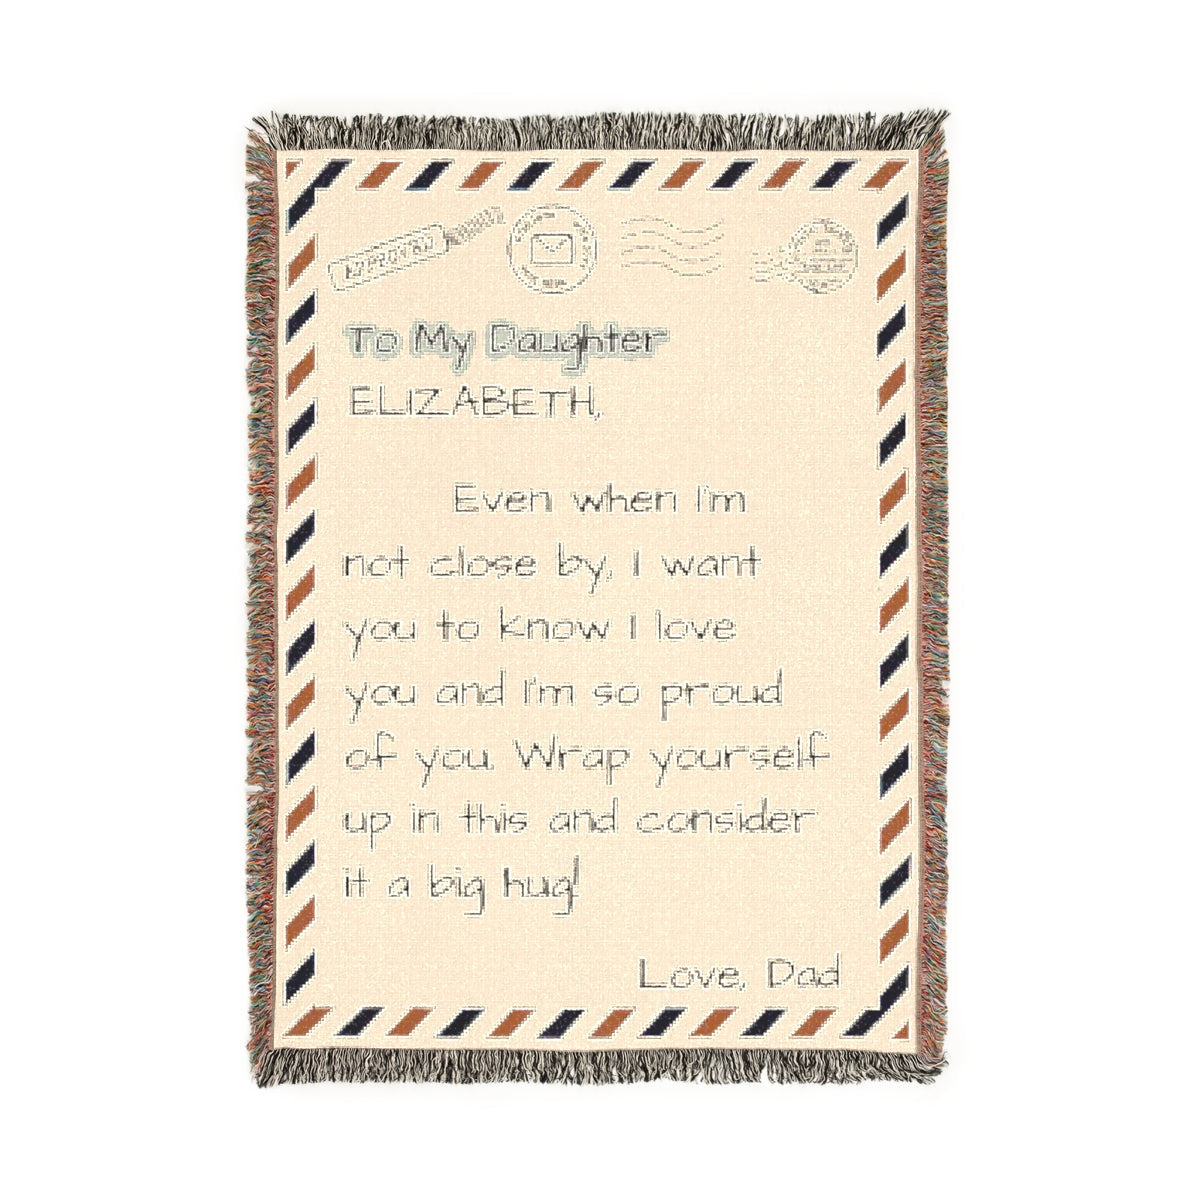 APPROVED
To My Daughter
ELIZABETH,
Even when I'm
not close by, I want
you to know I love
you and I'm so proud
of you. Wrap yourself
up in this and consider
it a big hug!
Love, Dad